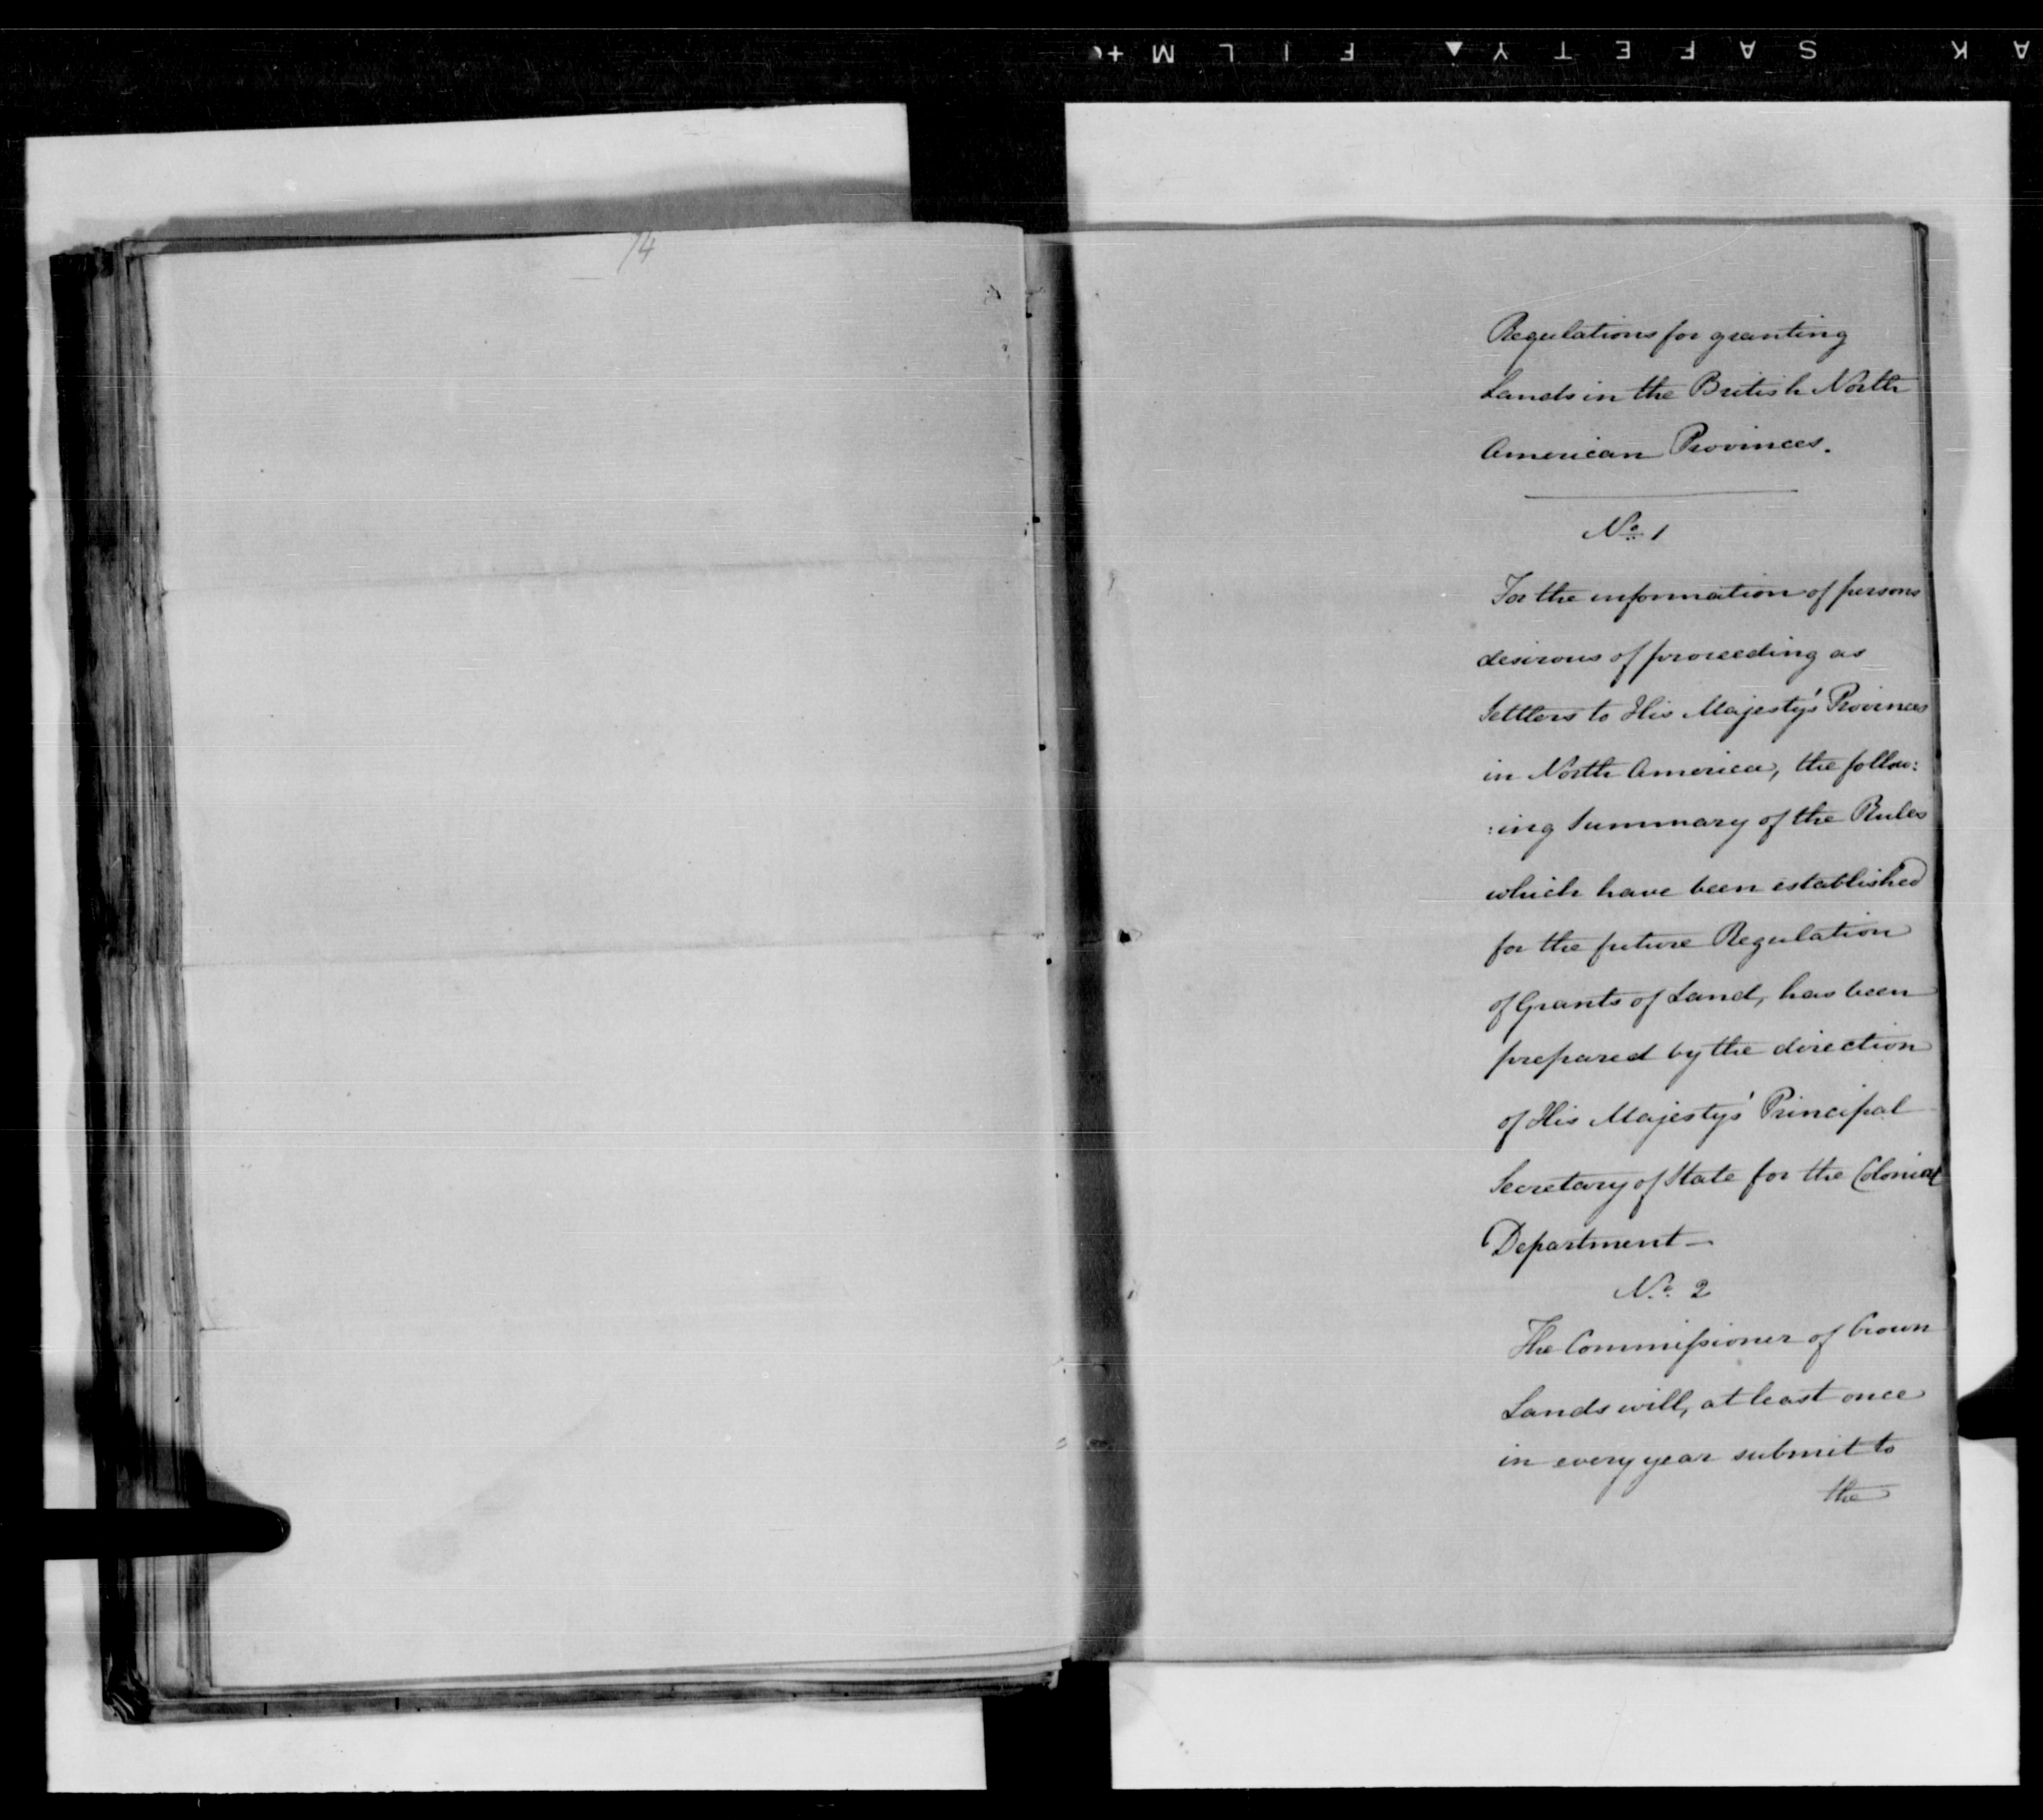 AK SAFETY▲ FILM+
74
Regulations for granting
Lands in the British North
American Provinces.
No. 1
For the information of persons
desirous of proceeding as
Settlers to His Majesty's Provinces
in North America, the follow:
:ing Summary of the Rules
which have been established
for the future Regulation
of Grants of Land, has been
prepared by the direction
of His Majesty's Principal
Secretary of State for the Colonial
Department—
No. 2
The Commiſsioner of Crown
Lands will, at least once
in every year submit to
the